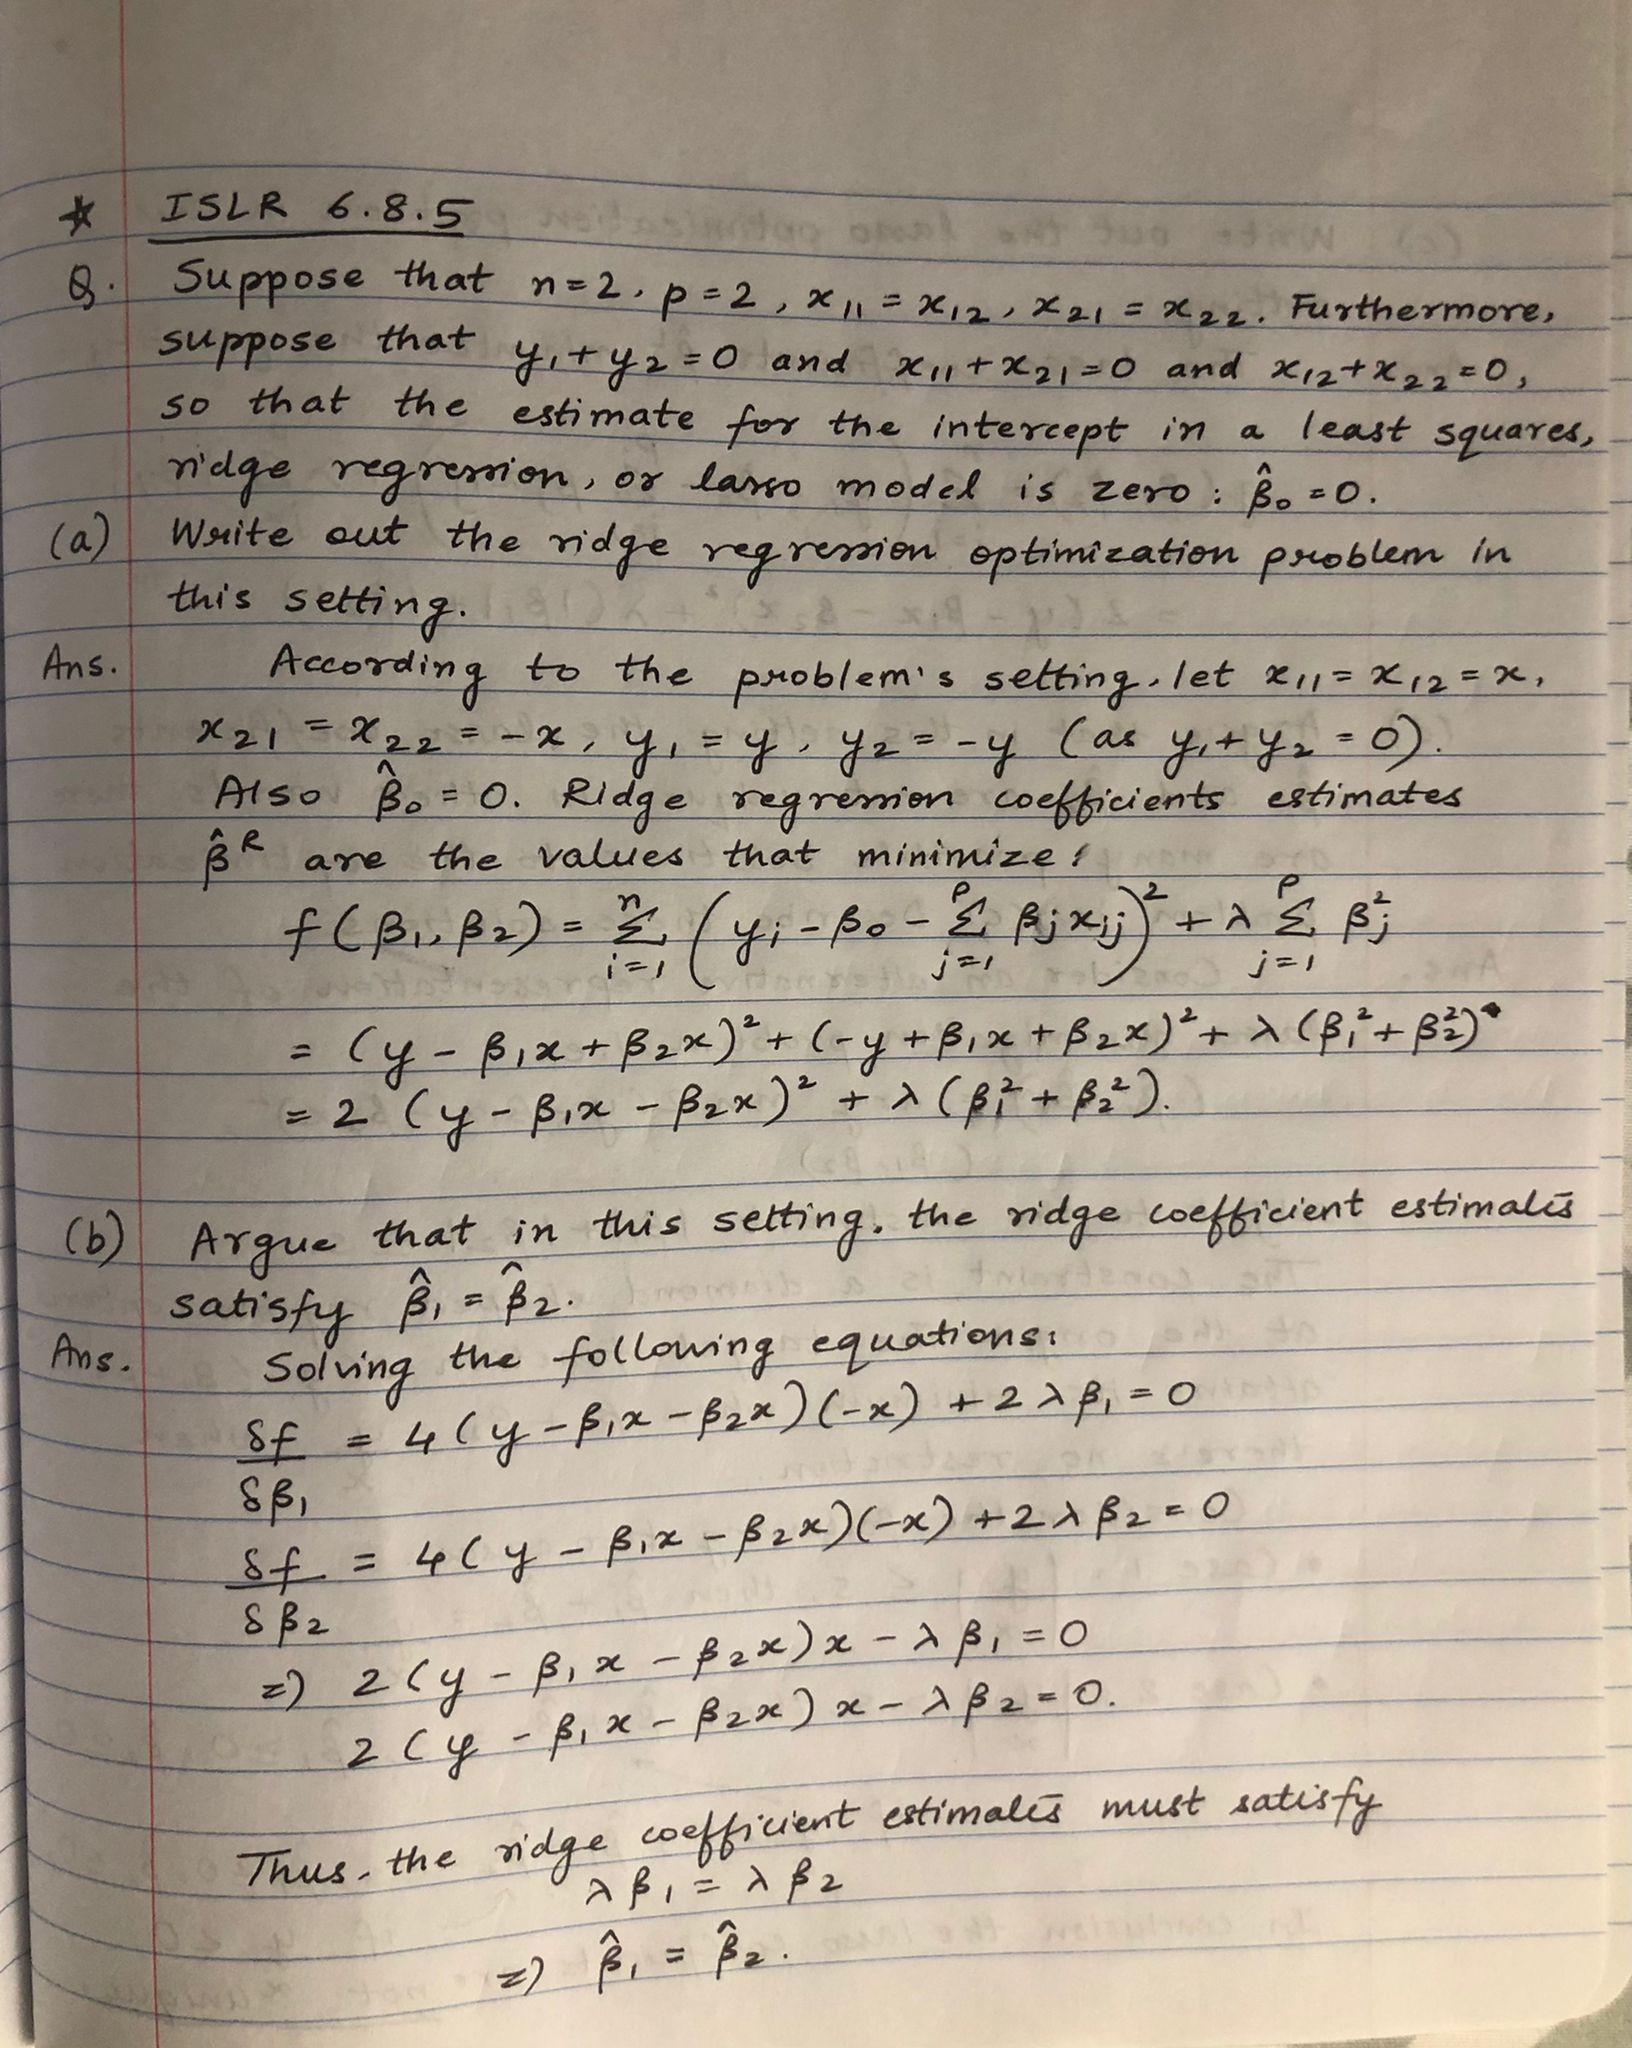 * ISLR 6.8.5
Q. Suppose that n=2, p=2, x₁₁ = x₁₂, x₂₁ = x₂₂. Furthermore,
suppose that y₁+y₂=0 and x₁₁+x₂₁=0 and x₁₂+x₂₂=0,
so that the estimate for the intercept in a least squares,
ridge regression, or lasso model is zero: β̂₀=0.
(a) Write out the ridge regression optimization problem in
this setting.
Ans. According to the problem's setting, let x₁₁=x₁₂=x,
x₂₁=x₂₂=-x, y₁=y, y₂=-y (as y₁+y₂=0).
Also β̂₀=0. Ridge regression coefficients estimates
β̂ᴿ are the values that minimize:
f(β₁,β₂) = Σᵢ₌₁ⁿ (yᵢ-β₀-Σⱼ₌₁ᵖ βⱼxᵢⱼ)² + λ Σⱼ₌₁ᵖ βⱼ²
= (y-β₁x+β₂x)² + (-y+β₁x+β₂x)² + λ(β₁²+β₂²)
= 2 (y-β₁x-β₂x)² + λ(β₁²+β₂²).
(b) Argue that in this setting, the ridge coefficient estimates
satisfy β̂₁ = β̂₂.
Ans. Solving the following equations:
δf/δβ₁ = 4(y-β₁x-β₂x)(-x) + 2λβ₁=0
δf/δβ₂ = 4(y-β₁x-β₂x)(-x) + 2λβ₂=0
=) 2(y-β₁x-β₂x)x-λβ₁=0
2(y-β₁x-β₂x)x-λβ₂=0.
Thus, the ridge coefficient estimates must satisfy
λβ₁=λβ₂
=) β̂₁ = β̂₂.